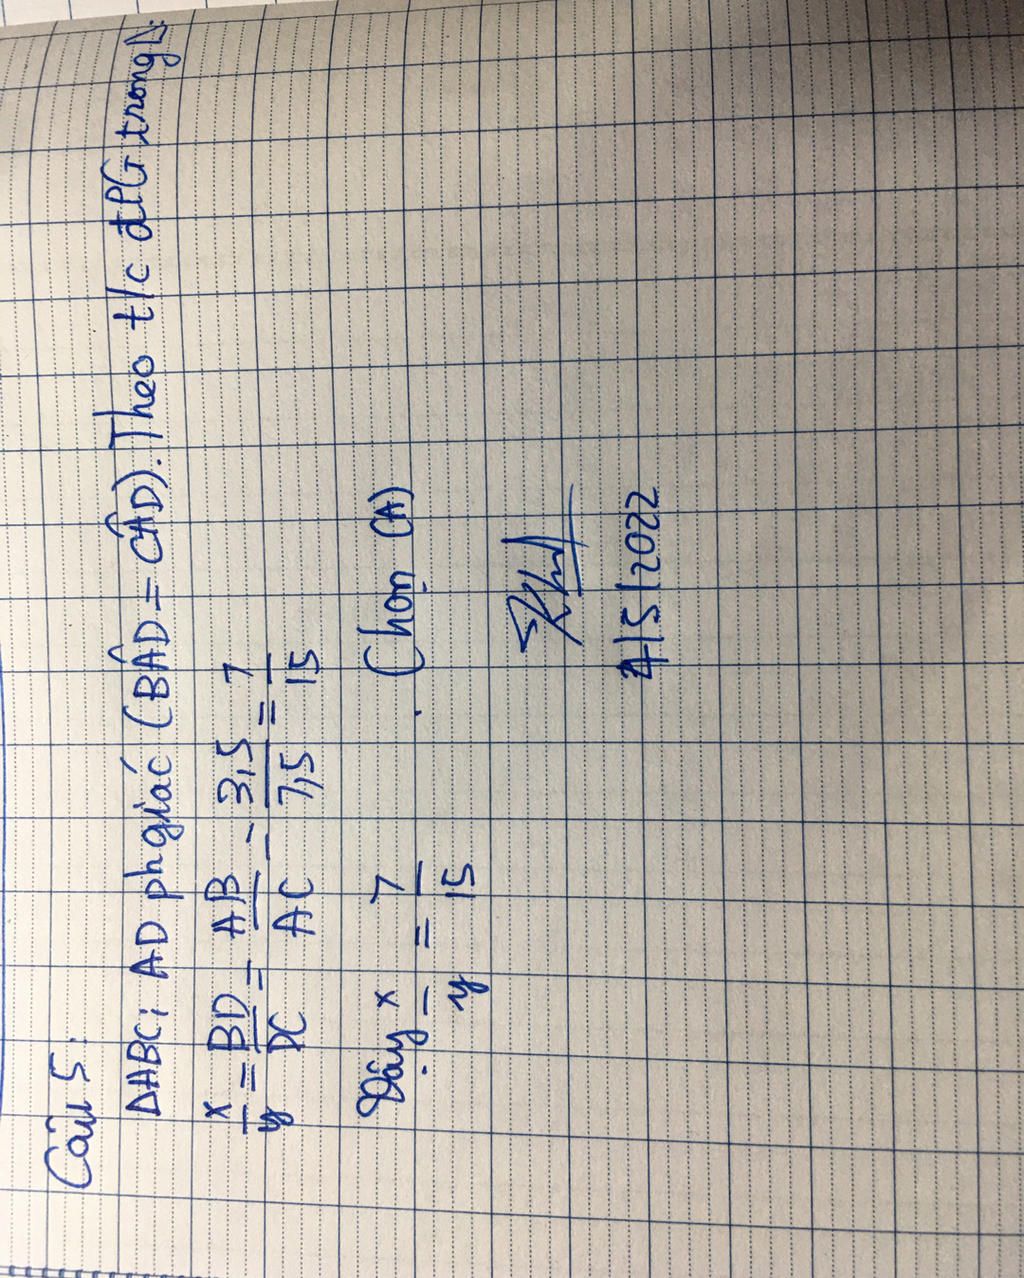 Câu 5:
ΔABC; AD phgiác (BÂD = CÂD). Theo t/c đPG trong Δ:
x/y = BD/DC = AB/AC = 3,5/7,5 = 7/15
Vậy x/y = 7/15. Chọn (A)
4/5/2022